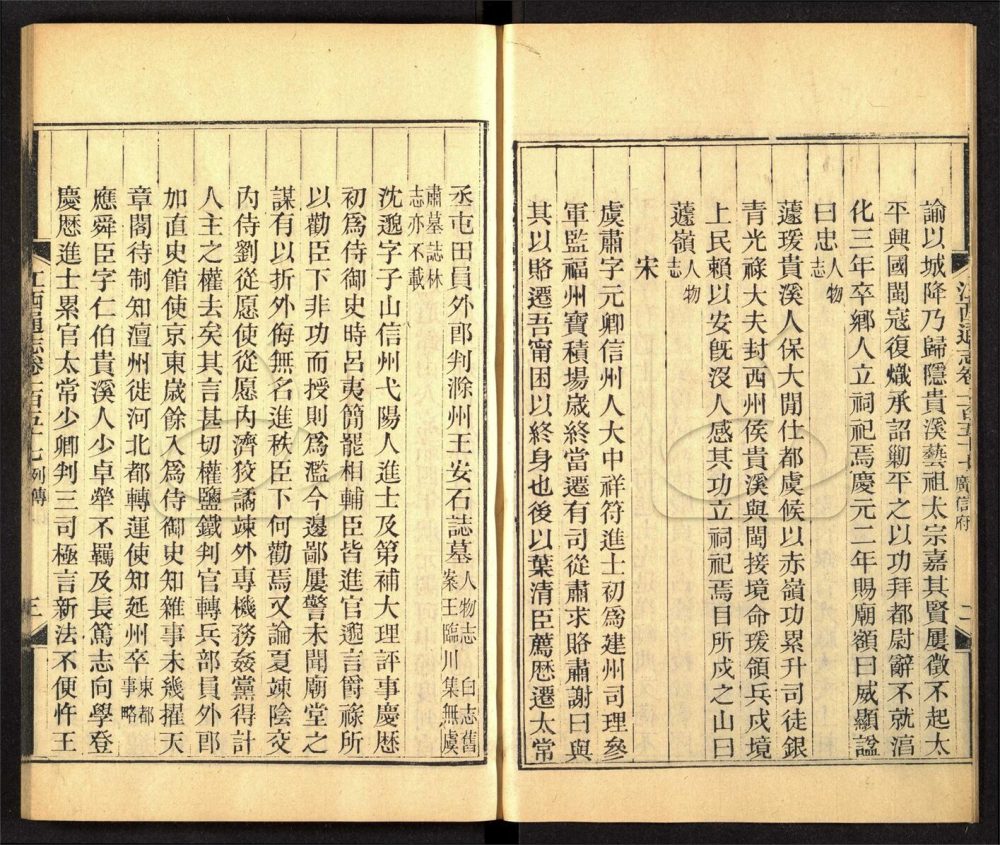 諭以城降乃歸隱貴溪藝祖太宗嘉其賢屢徵不起太
平興國閩寇復熾承詔勦平之以功拜都尉辭不就淯
化三年卒鄉人立祠祀焉慶元二年賜廟額曰威顯諡
曰忠人物志
蘧瑗貴溪人保大閒仕都虞候以赤嶺功累升司徒銀
青光祿大夫封西州侯貴溪與閩接境命瑗領兵戍境
上民賴以安旣歿人感其功立祠祀焉目所戍之山曰
蘧嶺人物志
宋
虞肅字元卿信州人大中祥符進士初爲建州司理參
軍監福州寶積場歲終當遷有司從肅求賂肅謝曰與
其以賂遷吾甯困以終身也後以葉清臣薦歷遷太常
江西通志卷一百五十七 廣信府 二
丞屯田員外郎判滁州王安石誌墓人物志 白志舊案王臨川集無虞
肅墓誌林志亦不載
沈邈字子山信州弋陽人進士及第補大理評事慶歷
初爲侍御史時呂夷簡罷相輔臣皆進官邈言爵祿所
以勸臣下非功而授則爲濫今邊鄙屢警未聞廟堂之
謀有以折外侮無名進秩臣下何勸焉又論夏竦陰交
內侍劉從愿使從愿內濟狡譎竦外專機務姦黨得計
人主之權去矣其言甚切權鹽鐵判官轉兵部員外郎
加直史館使京東歲餘入爲侍御史知雜事未幾擢天
章閣待制知澶州徙河北都轉運使知延州卒東都事略
應舜臣字仁伯貴溪人少卓犖不羈及長篤志向學登
慶歷進士累官太常少卿判三司極言新法不便忤王
江西通志卷一百五十七 列傳 三